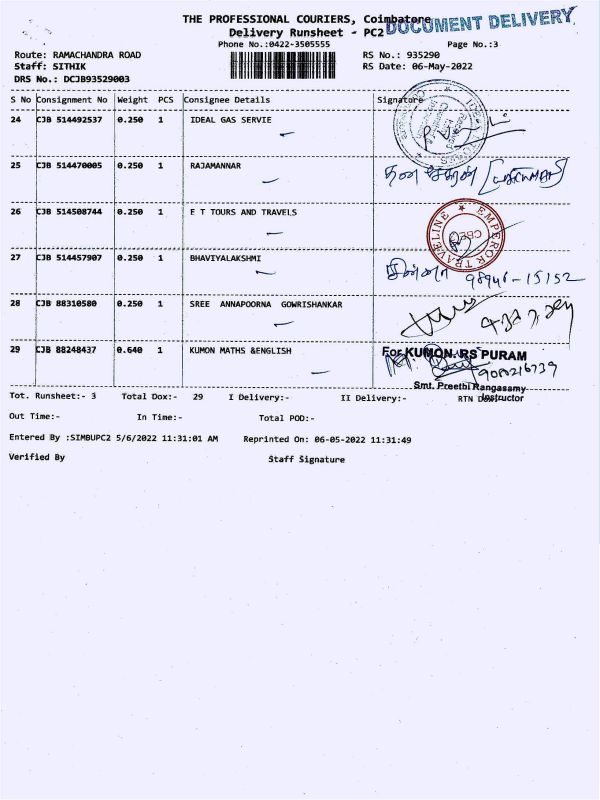 THE PROFESSIONAL COURIERS, Coimbatore
DOCUMENT DELIVERY
Delivery Runsheet - PC2
Phone No.:0422-3505555
Page No.:3
Route: RAMACHANDRA ROAD
RS No.: 935290
Staff: SITHIK
RS Date: 06-May-2022
DRS No.: DCJB93529003
S No Consignment No Weight PCS Consignee Details Signature
24 CJB 514492537 0.250 1 IDEAL GAS SERVIE
25 CJB 514470005 0.250 1 RAJAMANNAR
26 CJB 514508744 0.250 1 E T TOURS AND TRAVELS
EMPEROR TRAVELINE
CBE
27 CJB 514457907 0.250 1 BHAVIYALAKSHMI
98946-15152
28 CJB 88310580 0.250 1 SREE ANNAPOORNA GOWRISHANKAR
29 CJB 88248437 0.640 1 KUMON MATHS &ENGLISH
For KUMON. RS PURAM
9080216739
Smt. Preethi Rangasamy
Instructor
Tot. Runsheet:- 3 Total Dox:- 29 I Delivery:- II Delivery:- RTN Dox:-
Out Time:- In Time:- Total POD:-
Entered By :SIMBUPC2 5/6/2022 11:31:01 AM Reprinted On: 06-05-2022 11:31:49
Verified By Staff Signature